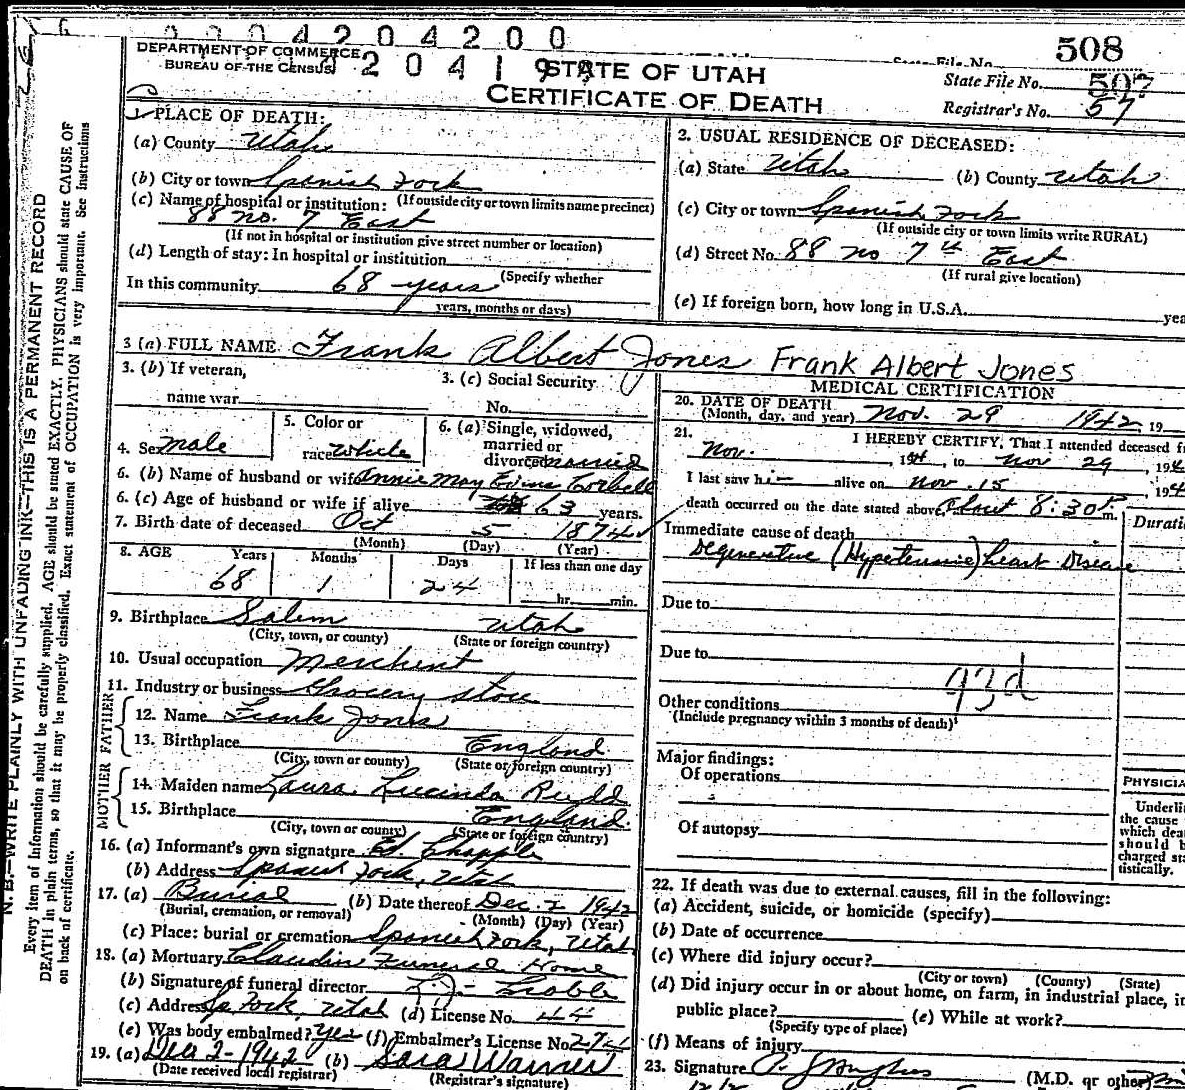 0004204200
508
DEPARTMENT OF COMMERCE
BUREAU OF THE CENSUS
STATE OF UTAH
CERTIFICATE OF DEATH
State File No. 507
Registrar's No. 57
1. PLACE OF DEATH:
(a) County Utah
(b) City or town Spanish Fork
(c) Name of hospital or institution: (If outside city or town limits name precinct)
88 no. 7 East
(If not in hospital or institution give street number or location)
(d) Length of stay: In hospital or institution
(Specify whether
In this community 68 years
years, months or days)
2. USUAL RESIDENCE OF DECEASED:
(a) State Utah (b) County Utah
(c) City or town Spanish Fork
(If outside city or town limits write RURAL)
(d) Street No. 88 no 7th East
(If rural give location)
(e) If foreign born, how long in U.S.A. yea
3 (a) FULL NAME Frank Albert Jones Frank Albert Jones
3. (b) If veteran,
name war
3. (c) Social Security
No.
4. Sex male
5. Color or
race white
6. (a) Single, widowed,
married or
divorced married
6. (b) Name of husband or wife Annie May Edina Corbell
6. (c) Age of husband or wife if alive 63 years.
7. Birth date of deceased Oct 5 1874
(Month) (Day) (Year)
8. AGE Years Months Days If less than one day
68 1 24 hr. min.
9. Birthplace Salem Utah
(City, town, or county) (State or foreign country)
10. Usual occupation Merchant
11. Industry or business Grocery store
FATHER
12. Name Frank Jones
13. Birthplace England
(City, town or county) (State or foreign country)
MOTHER
14. Maiden name Laura Lucinda Rudd
15. Birthplace England
(City, town or county) (State or foreign country)
16. (a) Informant's own signature Ed. Chapple
(b) Address Spanish Fork, Utah
17. (a) Burial (b) Date thereof Dec. 2 1942
(Burial, cremation, or removal) (Month) (Day) (Year)
(c) Place: burial or cremation Spanish Fork, Utah
18. (a) Mortuary Claudin Funeral Home
(b) Signature of funeral director
(c) Address Sp Fork, Utah (d) License No. 44
(e) Was body embalmed? Yes (f) Embalmer's License No. 274
19. (a) Dec 2-1942 (b) Sara Warner
(Date received local registrar) (Registrar's signature)
MEDICAL CERTIFICATION
20. DATE OF DEATH
(Month, day, and year) Nov. 29 1942 19
21. I HEREBY CERTIFY, That I attended deceased fr
Nov. , 19 , to Nov 29 , 194
I last saw him alive on Nov. 15 , 194
death occurred on the date stated above, About 8:30 P m.
Duratio
Immediate cause of death
Degenerative (Hypertensive) heart Disease
Due to
Due to
93d
Other conditions
(Include pregnancy within 3 months of death)
Major findings:
Of operations
Of autopsy
PHYSICIA
Underli
the cause
which dea
should b
charged sta
tistically.
22. If death was due to external causes, fill in the following:
(a) Accident, suicide, or homicide (specify)
(b) Date of occurrence
(c) Where did injury occur?
(City or town) (County) (State)
(d) Did injury occur in or about home, on farm, in industrial place, in
public place? (e) While at work?
(Specify type of place)
(f) Means of injury
23. Signature (M.D. or other)
N. B.—WRITE PLAINLY WITH UNFADING INK—THIS IS A PERMANENT RECORD
Every item of Information should be carefully supplied. AGE should be stated EXACTLY. PHYSICIANS should state CAUSE OF
DEATH in plain terms, so that it may be properly classified. Exact statement of OCCUPATION is very important. See Instructions
on back of certificate.